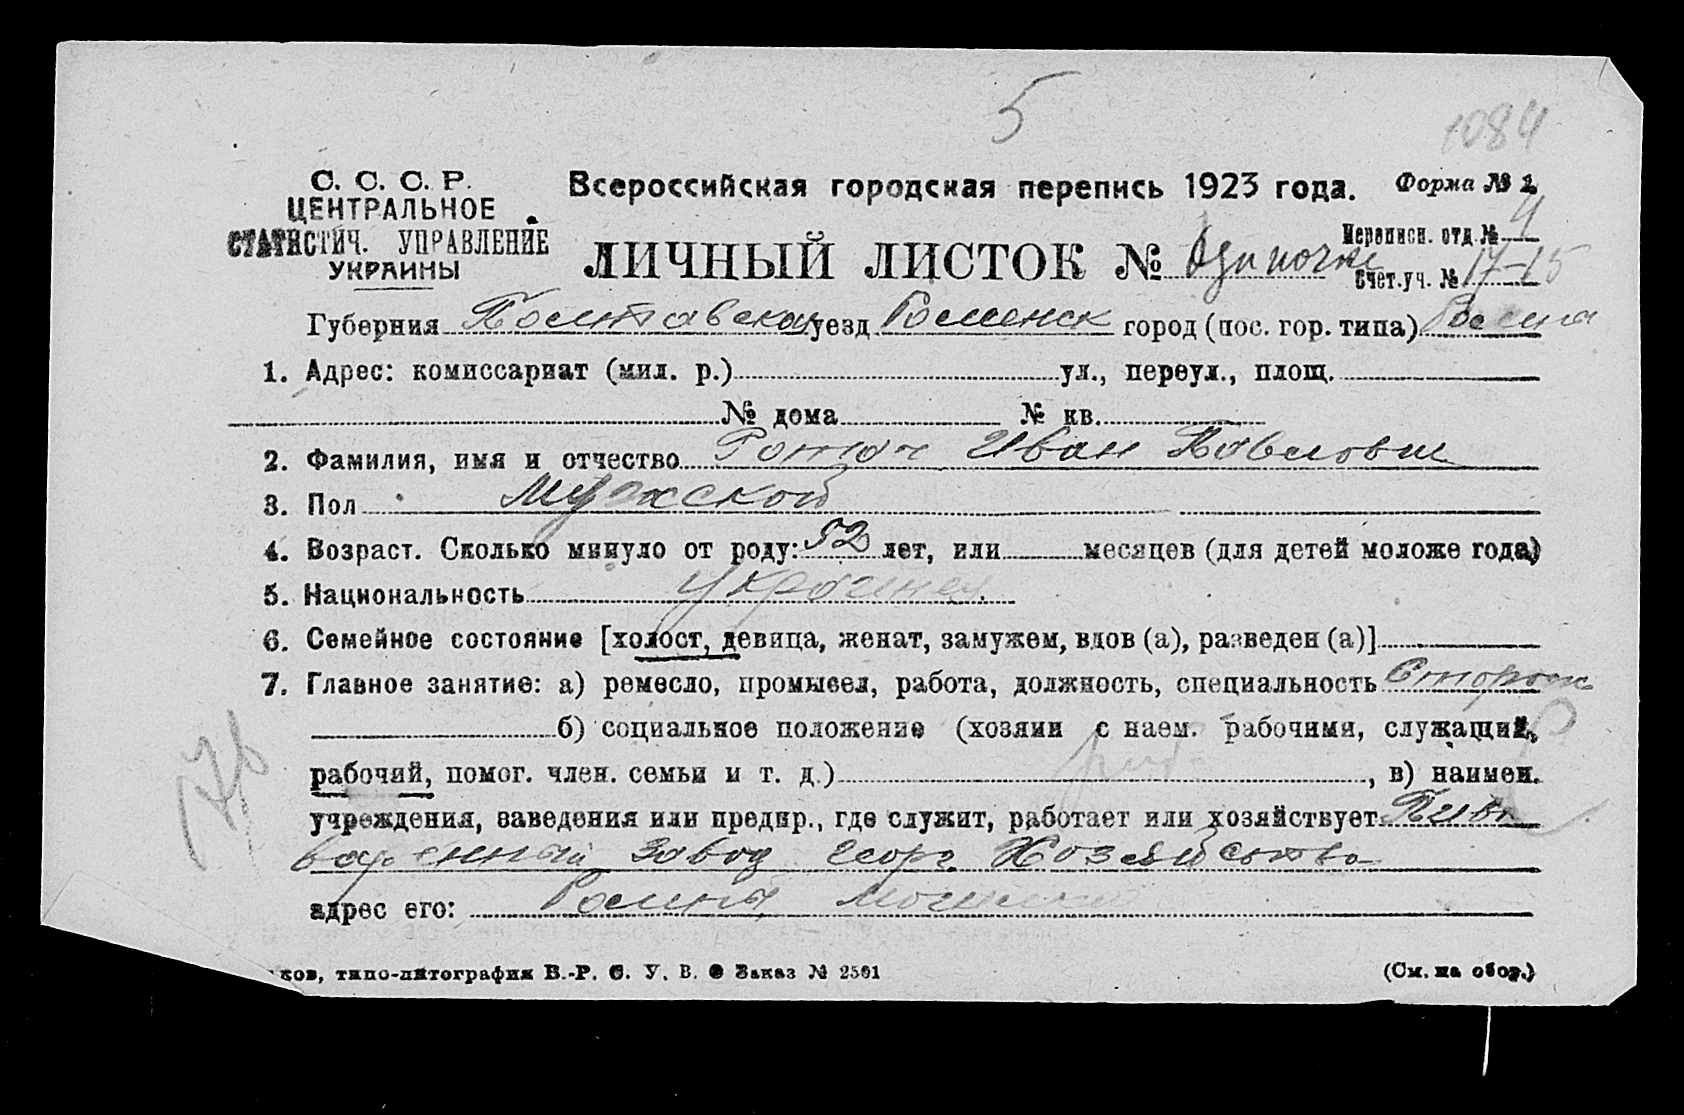 5
1084
С. С. С. Р.
ЦЕНТРАЛЬНОЕ
СТАТИСТИЧ. УПРАВЛЕНИЕ
УКРАИНЫ
Всероссийская городская перепись 1923 года. Форма № 2
Переписн. отд. № 4
ЛИЧНЫЙ ЛИСТОК № Одиночке
Счет.уч. № 17-15
Губерния Полтавская уезд Роменск город (пос. гор. типа) Ромны
1. Адрес: комиссариат (мил. р.) ул., переул., площ.
№ дома № кв.
2. Фамилия, имя и отчество Ротач Иван Павлович
3. Пол Мужской
4. Возраст. Сколько минуло от роду: 52 лет, или месяцев (для детей моложе года)
5. Национальность украинец
6. Семейное состояние [холост, девица, женат, замужем, вдов (а), разведен (а)]
7. Главное занятие: а) ремесло, промысел, работа, должность, специальность Сторож
б) социальное положение (хозяин с наем. рабочими, служащий,
рабочий, помог. член. семьи и т. д.) , в) наимен.
учреждения, заведения или предпр., где служит, работает или хозяйствует Пиво
варенный завод Хозяйство
адрес его: Ромны
176
ков, типо-литография В.-Р. С. У. В. О Заказ № 2501
(См. на обор.)